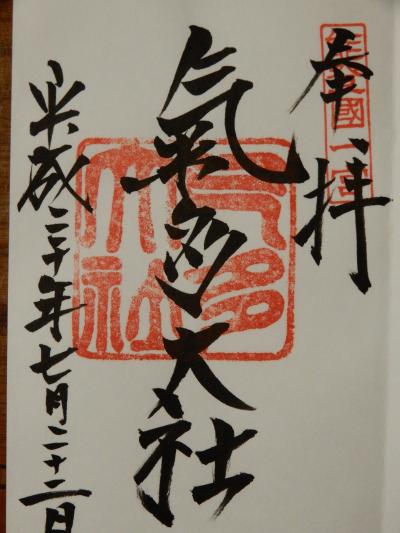 奉拝
能登國一宮
氣多大社
氣多大社
平成二十年七月二十二日